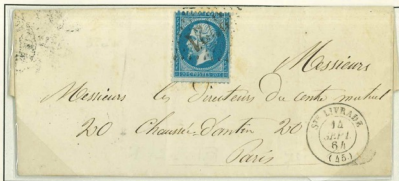 Messieurs
Messieurs les Directeurs du contre mutuel
20 Chaussée d'antin 20
Paris
STE LIVRADE
14
SEPT
64
(45)